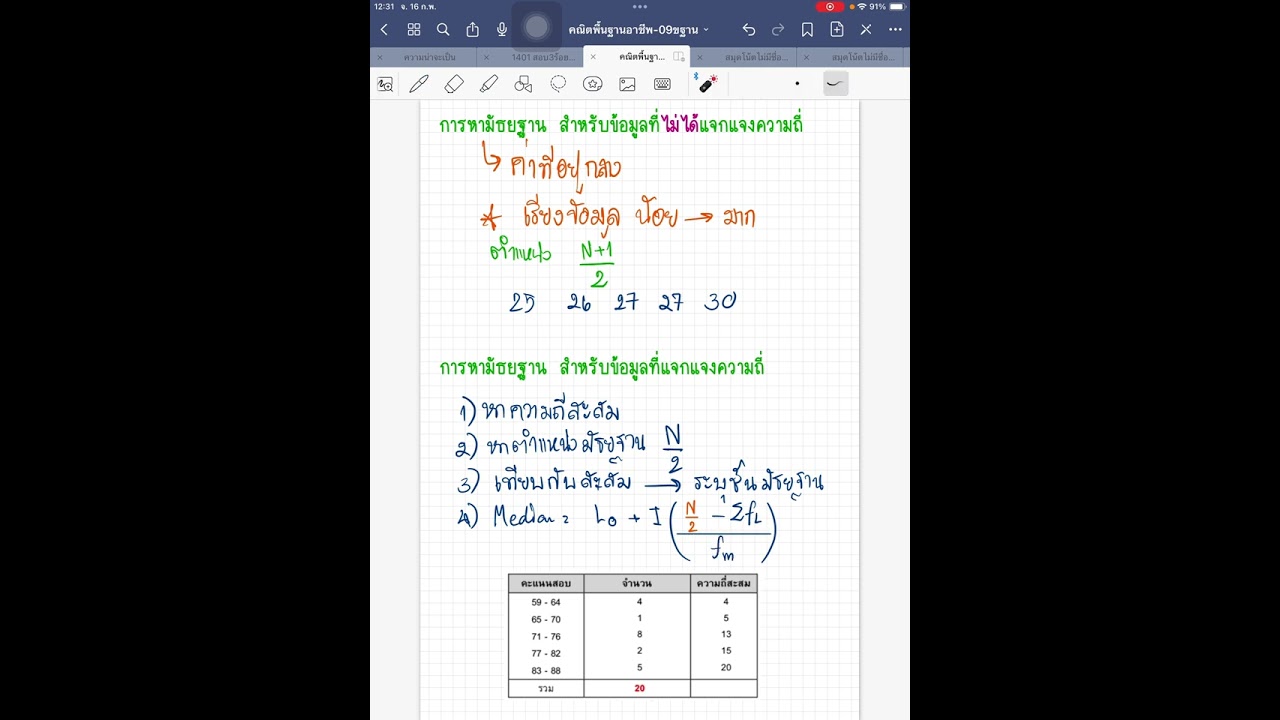 12:31 จ. 16 ก.พ. 91%
คณิตพื้นฐานอาชีพ-09ขฐาน
ความน่าจะเป็น 1401 สอบ3ร้อย... คณิตพื้นฐา... สมุดโน้ตไม่มีชื่อ... สมุดโน้ตไม่มีชื่อ...
การหามัธยฐาน สำหรับข้อมูลที่ไม่ได้แจกแจงความถี่
ค่าที่อยู่กลาง
* เรียงข้อมูล น้อย → มาก
ตำแหน่ง N+1/2
25 26 27 27 30
การหามัธยฐาน สำหรับข้อมูลที่แจกแจงความถี่
1) หาความถี่สะสม
2) หาตำแหน่งมัธยฐาน N/2
3) เทียบกับสะสม → ระบุชั้นมัธยฐาน
4) Median = L₀ + I ( (N/2 - Σf_L) / f_m )
คะแนนสอบ จำนวน ความถี่สะสม
59 - 64 4 4
65 - 70 1 5
71 - 76 8 13
77 - 82 2 15
83 - 88 5 20
รวม 20